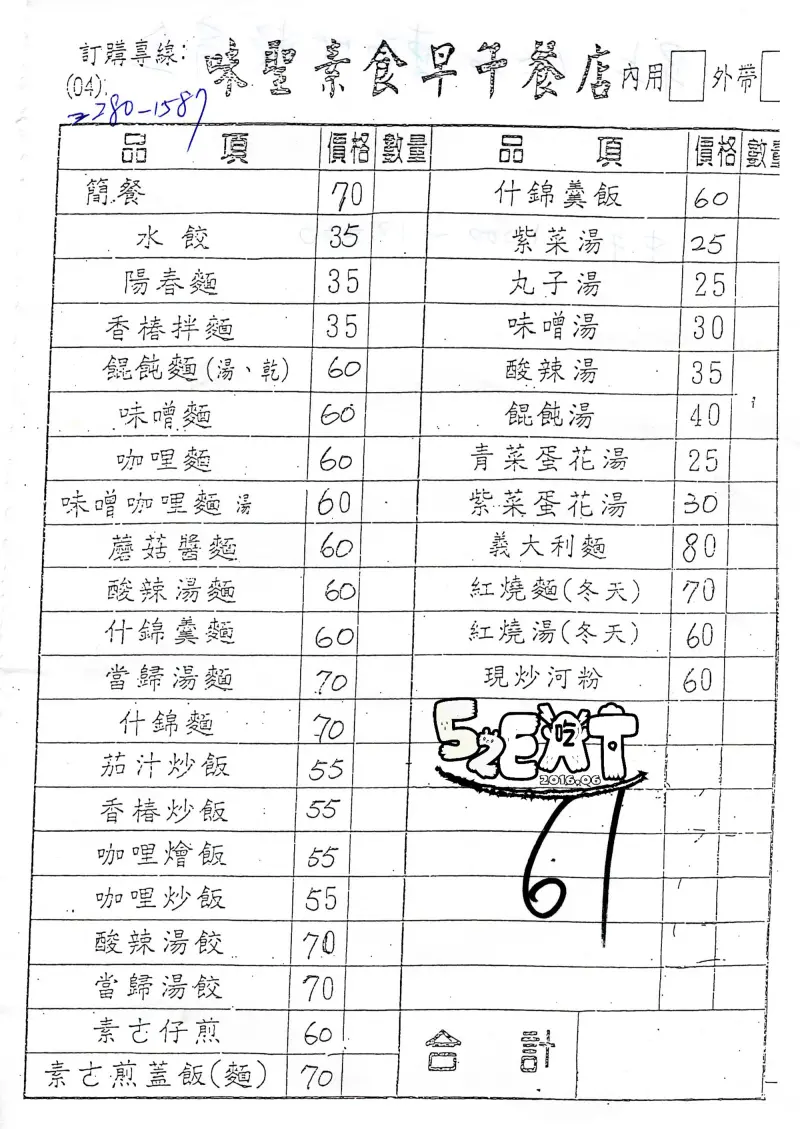 訂購專線: 味聖素食早午餐店 內用 外帶
(04): 2280-1587
品 項 價格 數量 品 項 價格 數量
簡餐 70 什錦羹飯 60
水餃 35 紫菜湯 25
陽春麵 35 丸子湯 25
香椿拌麵 35 味噌湯 30
餛飩麵(湯、乾) 60 酸辣湯 35
味噌麵 60 餛飩湯 40
咖哩麵 60 青菜蛋花湯 25
味噌咖哩麵 湯 60 紫菜蛋花湯 30
蘑菇醬麵 60 義大利麵 80
酸辣湯麵 60 紅燒麵(冬天) 70
什錦羹麵 60 紅燒湯(冬天) 60
當歸湯麵 70 現炒河粉 60
什錦麵 70
茄汁炒飯 55
香椿炒飯 55
咖哩燴飯 55
咖哩炒飯 55
酸辣湯餃 70
當歸湯餃 70
素㐁仔煎 60
素㐁煎蓋飯(麵) 70
合 計
52EAT 吃
2016.06